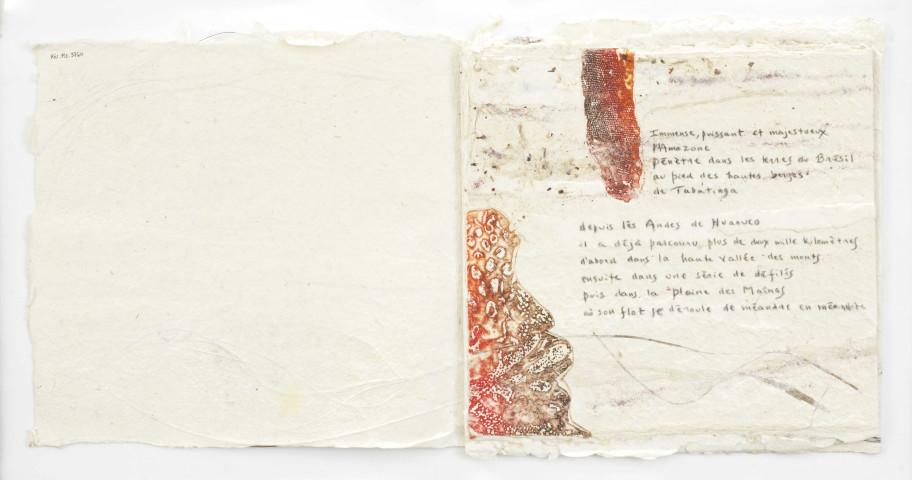 Rés. Mz. 3760
Immense, puissant et majestueux
l'Amazone
pénètre dans les terres du Brésil
au pied des hautes berges
de Tabatinga
depuis les Andes de Huanuco
il a déjà parcouru plus de deux mille kilomètres
d'abord dans la haute vallée des monts
ensuite dans une série de défilés
puis dans la plaine des Maïnas
où son flot se déroule de méandre en méandre